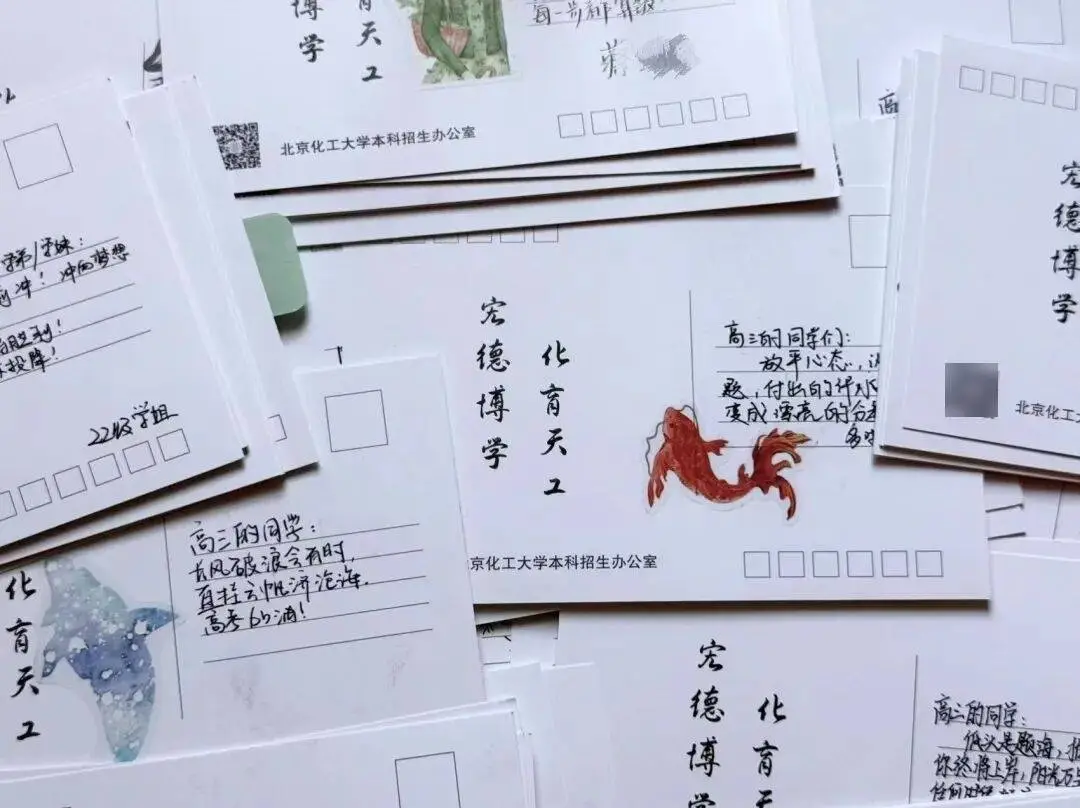 博学
育天工
每一步都算数!
蒋
北京化工大学本科招生办公室
学弟/学妹:
冲! 冲向梦想
胜利!
投降!
22级学姐
宏德博学
化育天工
高三的同学们:
放平心态,
题,付出的汗水
变成漂亮的分
北京化工大学本科招生办公室
宏德博学
北京化工
化育天工
高三的同学:
长风破浪会有时,
直挂云帆济沧海.
高考加油!
宏德博学
化育天
高三的同学:
低头是题海,
你终将上岸,阳光万